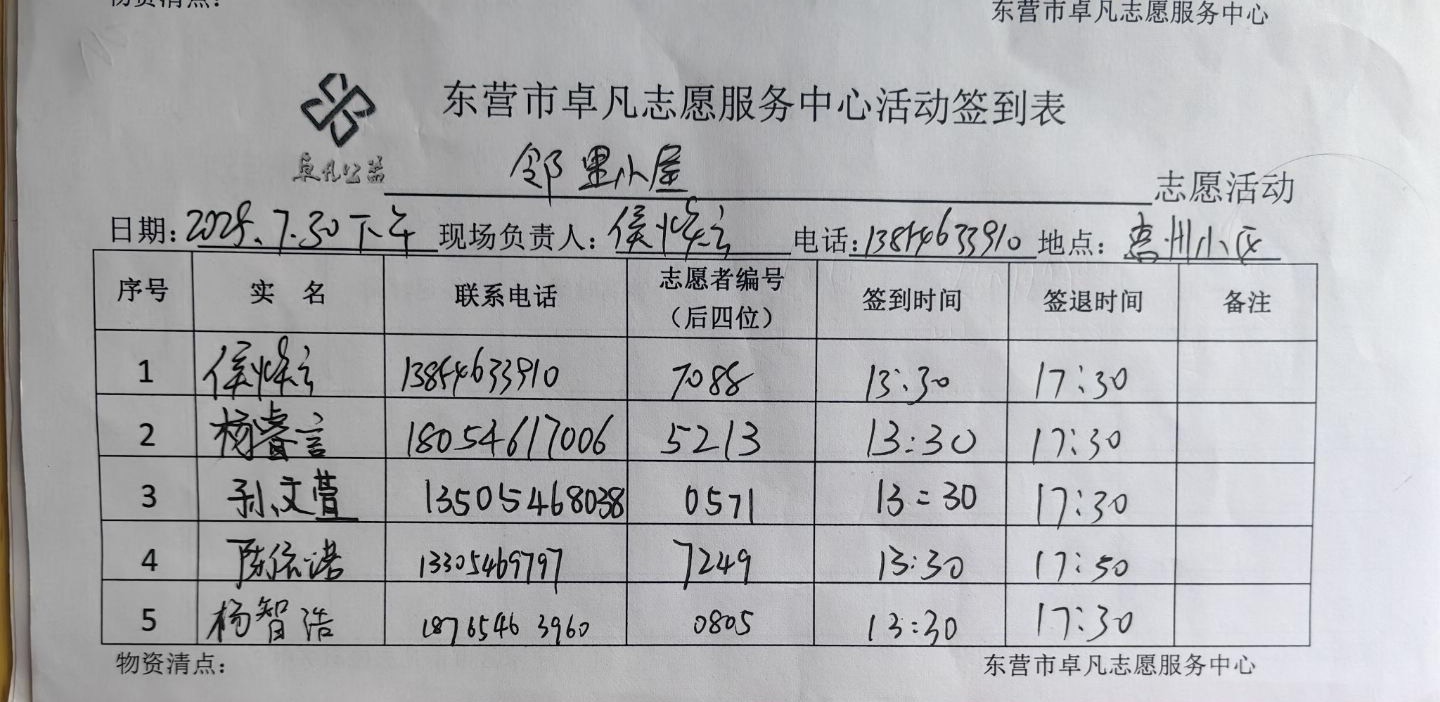 物资清点：
东营市卓凡志愿服务中心
东营市卓凡志愿服务中心活动签到表
卓凡公益
邻里小屋 志愿活动
日期：2025.7.30下午 现场负责人：侯 电话：13854633910 地点：惠州小区
序号 实 名 联系电话 志愿者编号（后四位） 签到时间 签退时间 备注
1 侯 13854633910 7088 13:30 17:30
2 杨睿言 18054617006 5213 13:30 17:30
3 孙文萱 13505468038 0571 13:30 17:30
4 陈依诺 13305469797 7249 13:30 17:50
5 杨智浩 18765463960 0805 13:30 17:30
物资清点：
东营市卓凡志愿服务中心